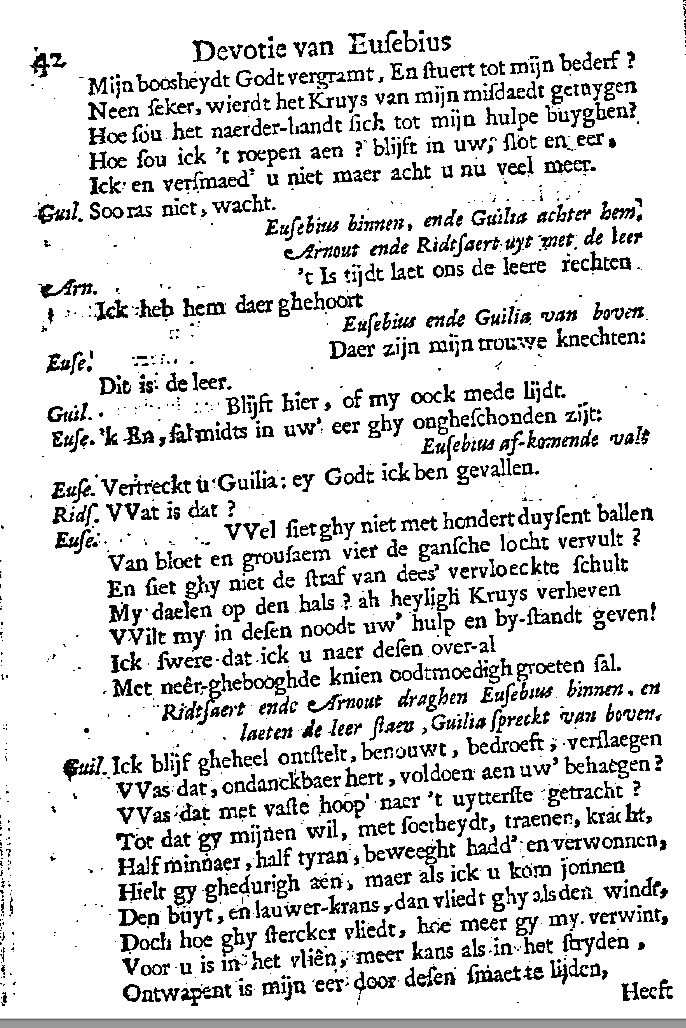 42 Devotie van Euſebius
Mijn boosheydt Godt vergramt, En ſtuert tot mijn bederf ?
Neen ſeker, wierdt het Kruys van mijn miſdaedt getuygen
Hoe ſou het naerder-handt ſich tot mijn hulpe buyghen?
Hoe ſou ick 't roepen aen ? blijft in uw' ſlot en eer,
Ick en verſmaed' u niet maer acht u nu veel meer.
Guil. Soo ras niet, wacht.
Euſebius binnen, ende Guilia achter hem,
Arnout ende Ridtſaert uyt met de leer
Arn. 't Is tijdt laet ons de leere rechten
Ick heb hem daer ghehoort
Euſebius ende Guilia van boven
Euſe. Daer zijn mijn trouwe knechten:
Dit is de leer.
Guil. Blijft hier, of my oock mede lijdt.
Euſe. 'k En, ſal midts in uw' eer ghy ongheſchonden zijt:
Euſebius af-komende valt
Euſe. Vertreckt u Guilia: ey Godt ick ben gevallen.
Ridſ. VVat is dat ?
Euſe. VVel ſiet ghy niet met hondert duyſent ballen
Van bloet en grouſaem vier de ganſche locht vervult ?
En ſiet ghy niet de ſtraf van dees' vervloeckte ſchult
My daelen op den hals ? ah heyligh Kruys verheven
VVilt my in deſen noodt uw' hulp en by-ſtandt geven!
Ick ſwere dat ick u naer deſen over-al
Met neêr-ghebooghde knien oodtmoedigh groeten ſal.
Ridtſaert ende Arnout draghen Euſebius binnen, en
laeten de leer ſtaen, Guilia ſpreckt van boven.
Guil. Ick blijf gheheel ontſtelt, benouwt, bedroeft, verſlaegen
VVas dat, ondanckbaer hert, voldoen aen uw' behaegen?
VVas dat met vaſte hoop' naer 't uytterſte getracht ?
Tot dat gy mijnen wil, met ſoetheydt, traenen, kracht,
Half minnaer, half tyran, beweeght hadd' en verwonnen,
Hielt gy ghedurigh aen, maer als ick u kom jonnen
Den buyt, en lauwer-krans, dan vliedt ghy als den windt,
Doch hoe ghy ſtercker vliedt, hoe meer gy my verwint,
Voor u is in het vliên, meer kans als in het ſtryden,
Ontwapent is mijn eer door deſen ſmaette lijden,
Heeft